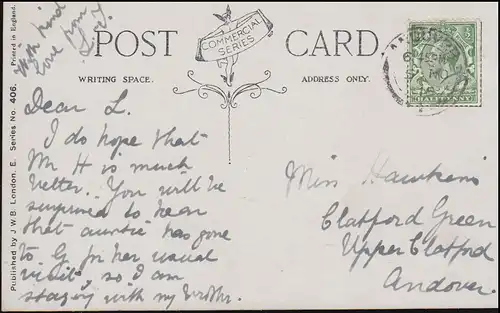 With kind
love from
L. J.
POST CARD.
COMMERCIAL
SERIES
WRITING SPACE.
ADDRESS ONLY.
HALFPENNY
Dear L.
I do hope that
Mr H is much
better. You will be
surprised to hear
that auntie has gone
to G for her usual
visit, so I am
staying with my brother.
Miss Hawkins
Clatford Green
Upper Clatford
Andover.
Published by J.W.B. London, E. Series No. 406. Printed in England.